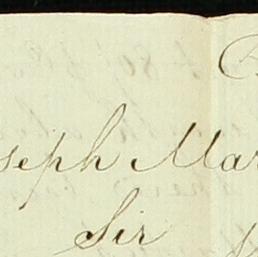 seph Mar
Sir